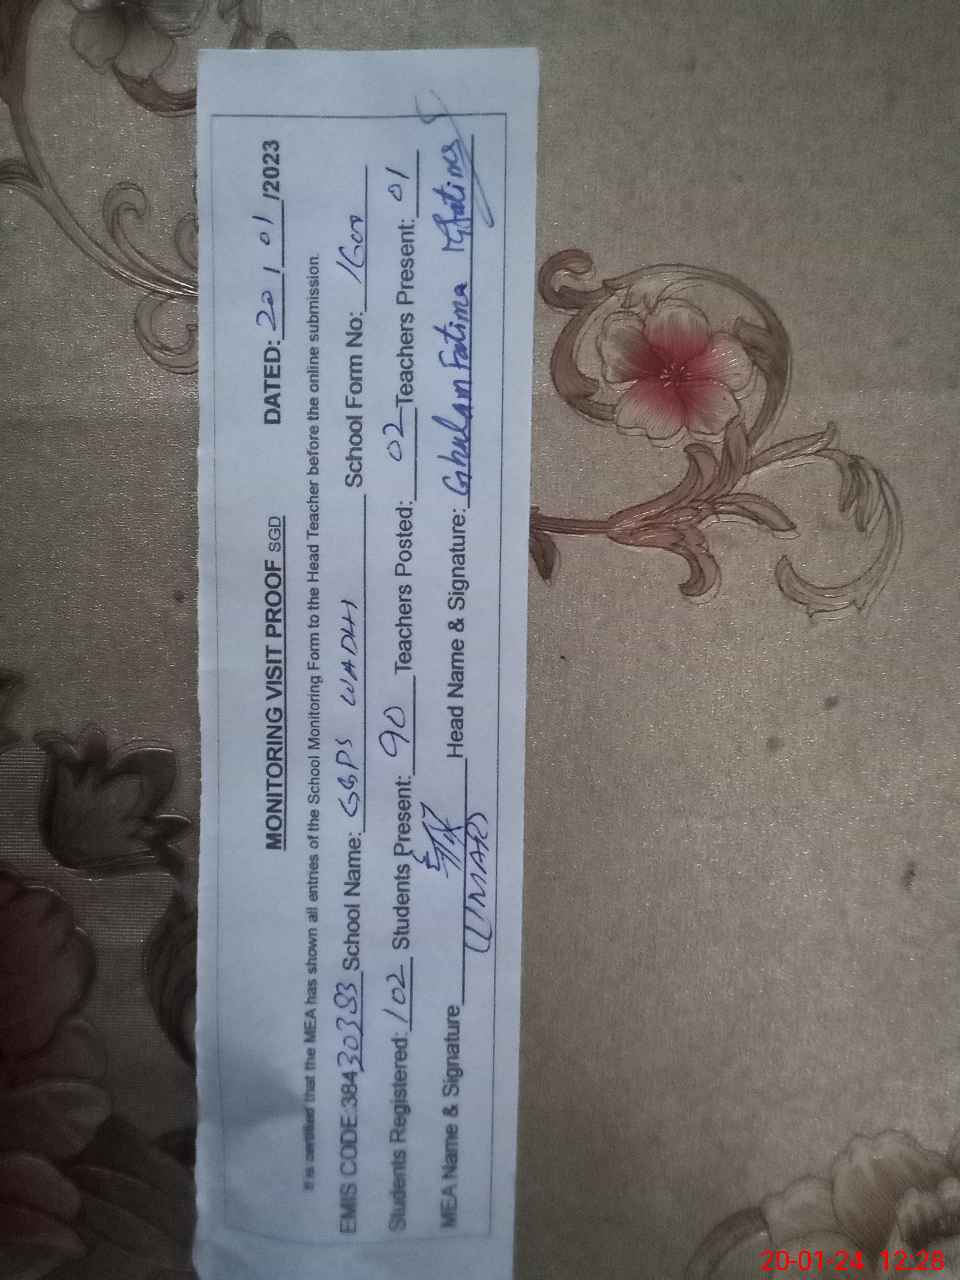 MONITORING VISIT PROOF SGD DATED: 20 / 01 /2023
It is certified that the MEA has shown all entries of the School Monitoring Form to the Head Teacher before the online submission.
EMIS CODE:38430383 School Name: GGPS WADHI School Form No:
Students Registered: 102 Students Present: 90 Teachers Posted: 02 Teachers Present: 01
MEA Name & Signature UMAR Head Name & Signature: Ghulam Fatima
20-01-24 12:28